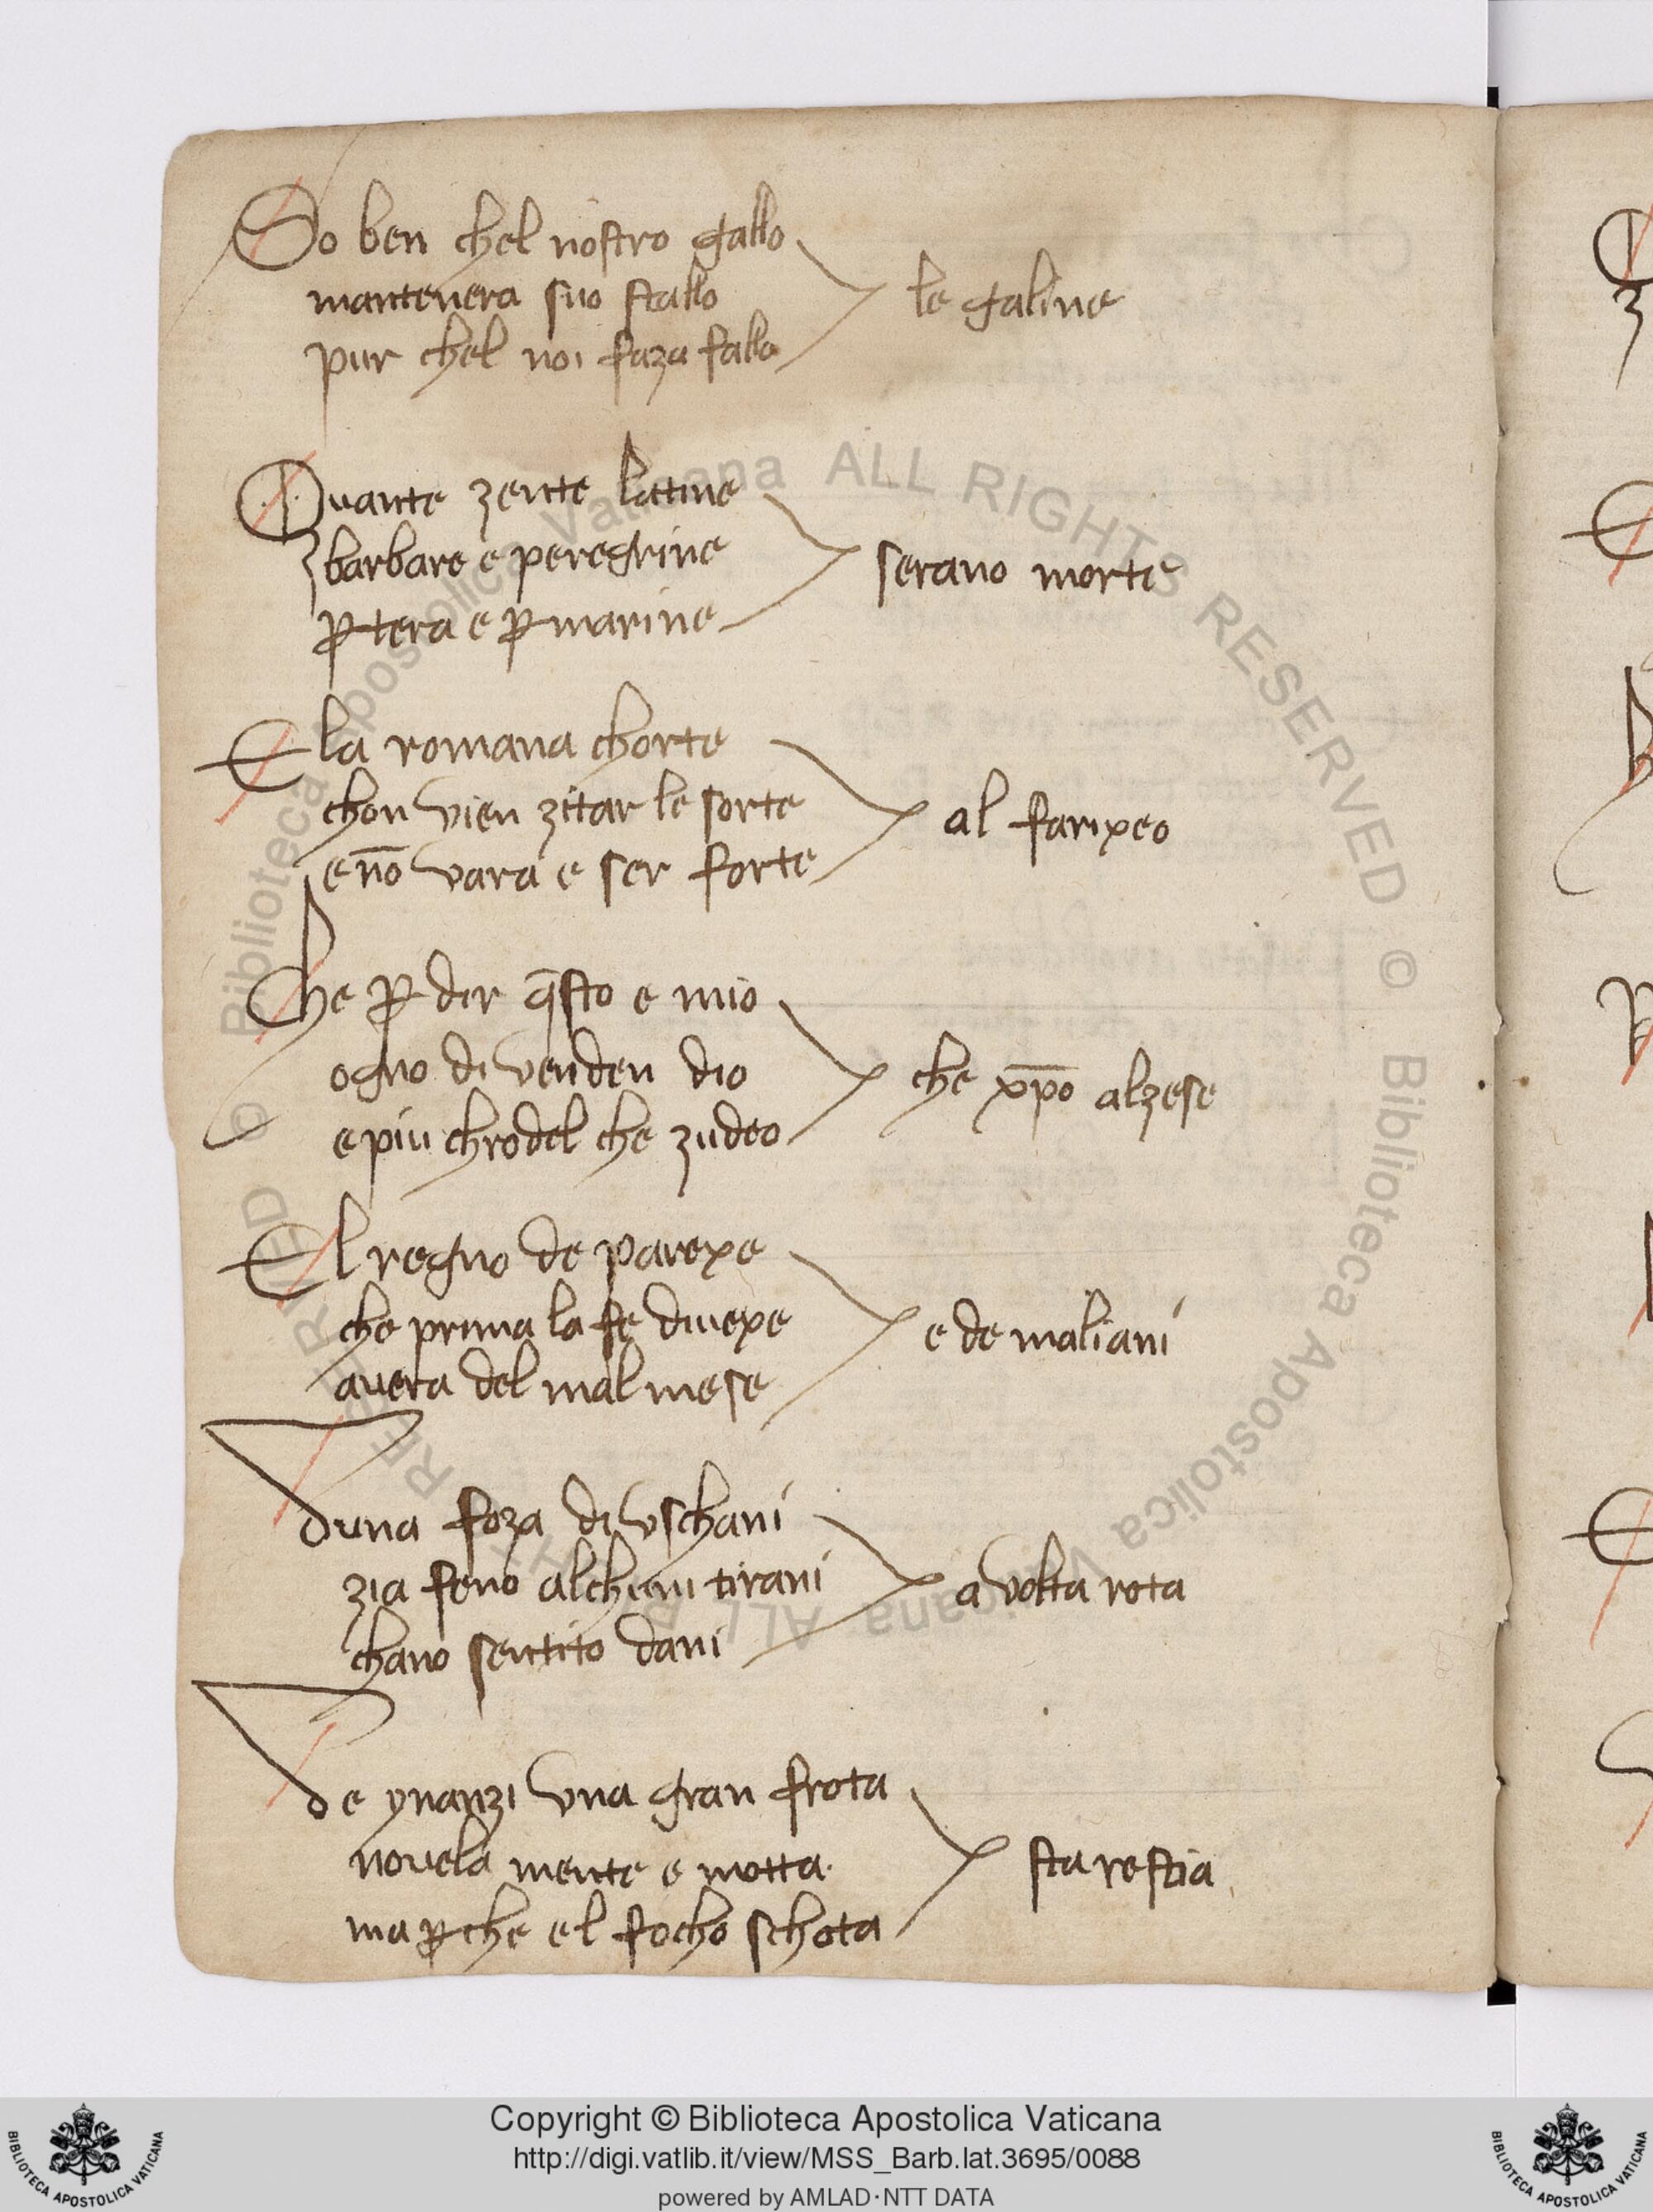 So ben chel nostro gallo
mantenera suo stallo
pur chel noi faza fallo
le galine
Quante zente latine
barbare e peregrine
ꝑ tera e ꝑ marine
serano morte
E la romana chorte
chon vien zitar le sorte
e nō vara e ser forte
al farixeo
Che ꝑ dir q̄sto e mio
ogno di venden dio
e piu chrodel che zudeo
che xp̄o alzese
El regno de parexe
che prima la fe divexe
avera del mal mese
e de maliani
duna foza di uschani
zia feno alchuni tirani
chano sentito dani
a volta rota
de ynanzi una gran frota
novela mente e motta
ma ꝑche el focho schota
sta restia
© Biblioteca Apostolica Vaticana ALL RIGHTS RESERVED © Biblioteca Apostolica Vaticana ALL RIGHTS RESERVED
Copyright © Biblioteca Apostolica Vaticana
http://digi.vatlib.it/view/MSS_Barb.lat.3695/0088
powered by AMLAD·NTT DATA
BIBLIOTECA APOSTOLICA VATICANA
BIBLIOTECA APOSTOLICA VATICANA